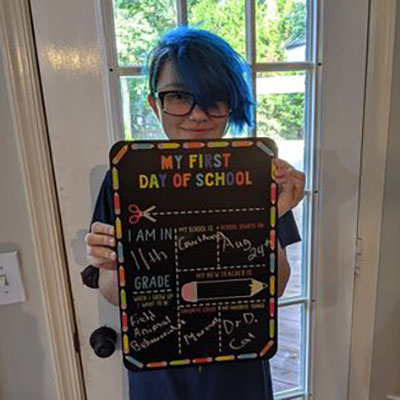 MY FIRST
DAY OF SCHOOL
I AM IN
11th
GRADE
MY SCHOOL IS
SCHOOL STARTS ON
Aug
24th
MY NEW TEACHER IS
WHEN I GROW UP
I WANT TO BE
Field
Animal
Behaviorist
FAVORITE COLOR
Maroon
MY FAVORITE THINGS
Dr. D.
Cat